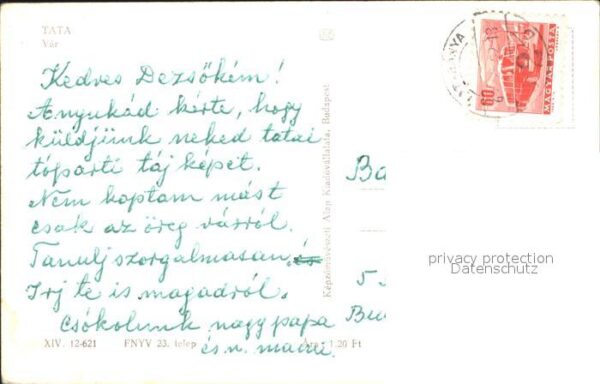 TATA
Vár
Kedves Dezsőkém!
Anyukád kérte, hogy
küldjünk neked tatai
tóparti táj képet.
Nem kaptam mást
csak az öreg várról.
Tanulj szorgalmasan.
Irj te is magadról.
Csókolunk nagypapa
és n. mama.
XIV. 12-621 FNYV 23. telep Ára: 1.20 Ft
Képzőművészeti Alap Kiadóvállalata, Budapest
60
MAGYAR POSTA
privacy protection
Datenschutz
5